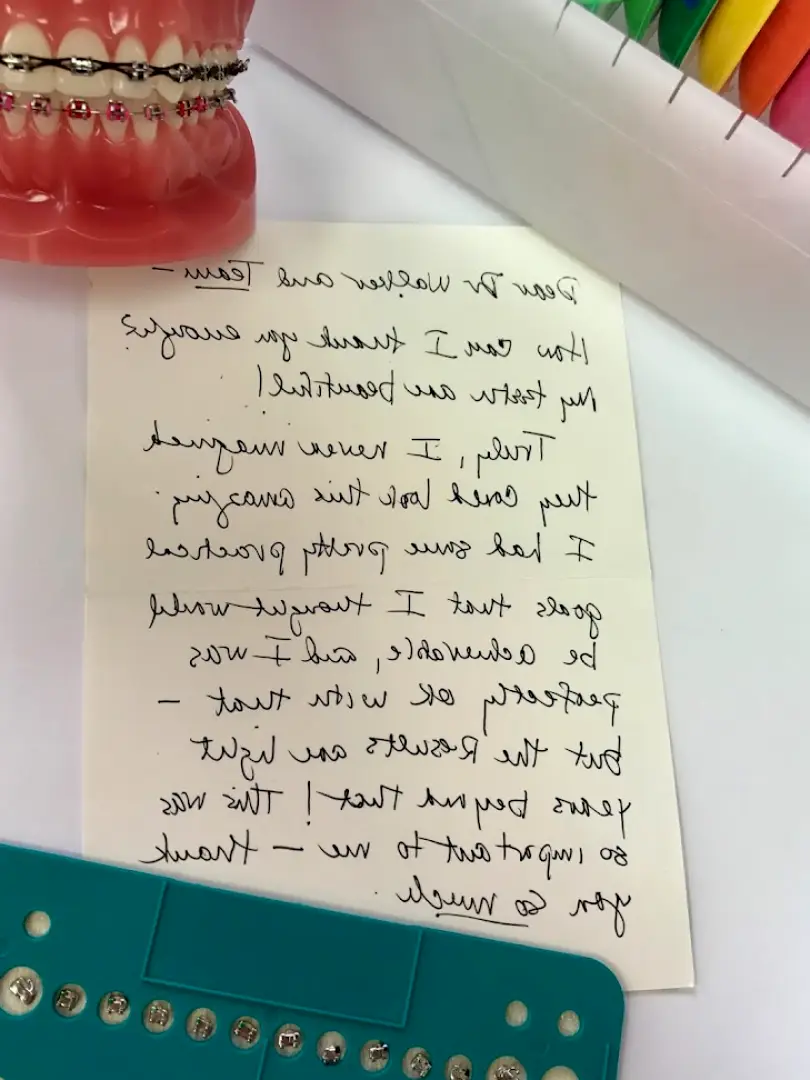 Dear Dr Walker and Team –
How can I thank you enough?
My teeth are beautiful!
Truly, I never imagined
they could look this amazing.
I had some pretty practical
goals that I thought would
be achievable, and I was
perfectly ok with that –
but the Results are light
years beyond that! This was
so important to me – thank
you so much.